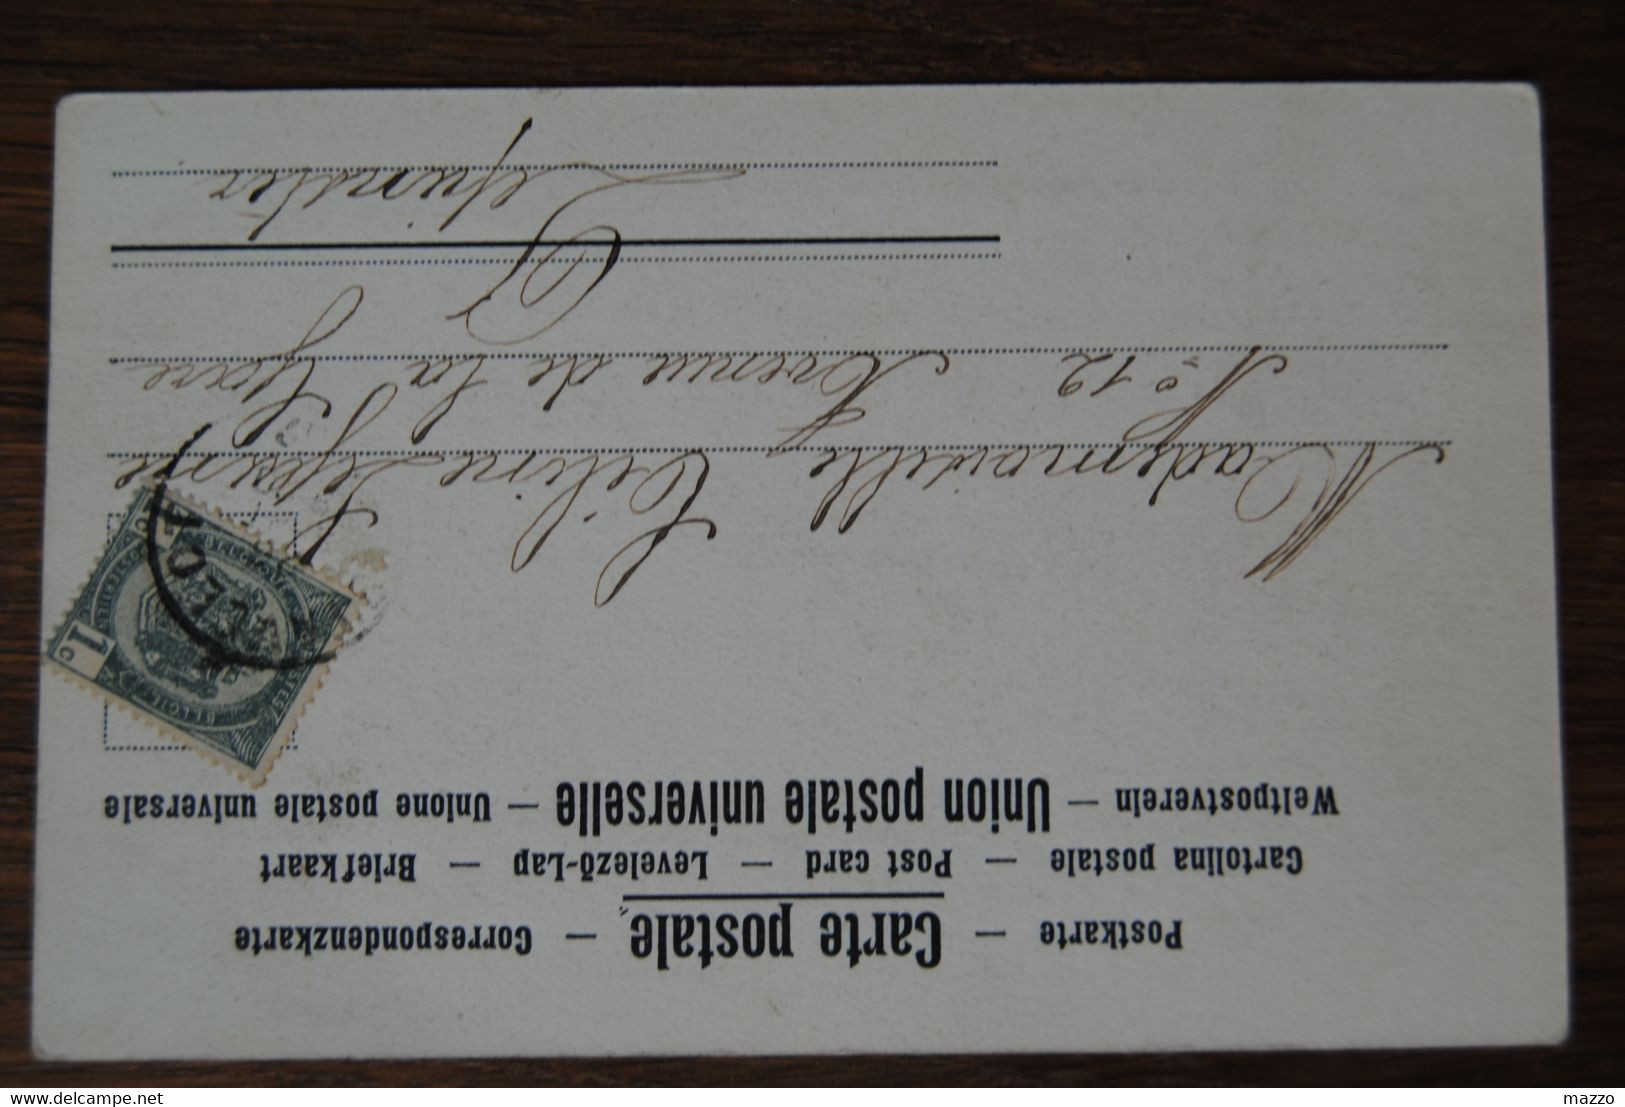 Postkarte — Carte postale — Correspondenzkarte
Cartolina postale — Post card — Levelező-Lap — Briefkaart
Weltpostverein — Union postale universelle — Unione postale universale
1 c
BELGIQUE
Mademoiselle Céline Lejeune
N° 12 Avenue de la Gare
Lepinster
delcampe.net
mazzo